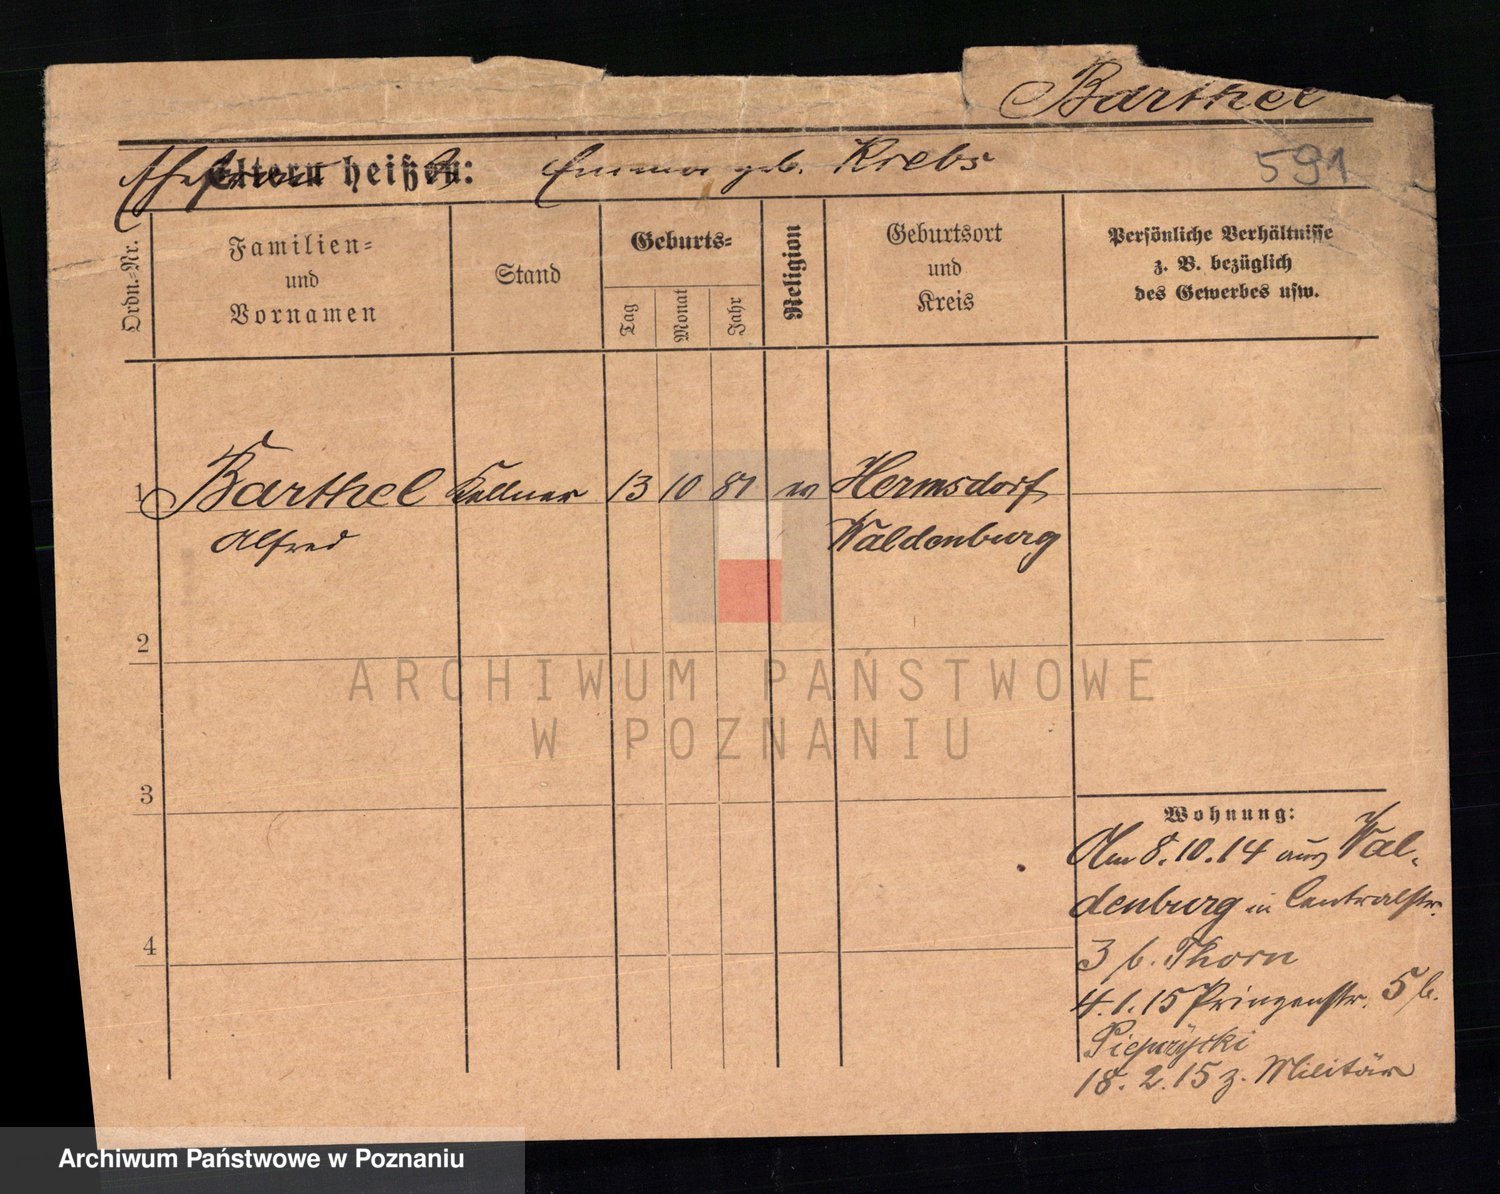 Barthel
Eltern heißen: Emma geb. Krebs
591
Ordn.-Nr.
Familien-
und
Vornamen
Stand
Geburts-
Tag
Monat
Jahr
Religion
Geburtsort
und
Kreis
Persönliche Verhältnisse
z. B. bezüglich
des Gewerbes usw.
1 Barthel Kellner 13 10 81 Hermsdorf
Alfred Waldenburg
2
3
4
Wohnung:
Am 8.10.14 aus Wal-
denburg in Centralstr.
3 b. Thorn
4.1.15 Prinzenstr. 5 b.
18.2.15 z. Militär
ARCHIWUM PAŃSTWOWE
W POZNANIU
Archiwum Państwowe w Poznaniu